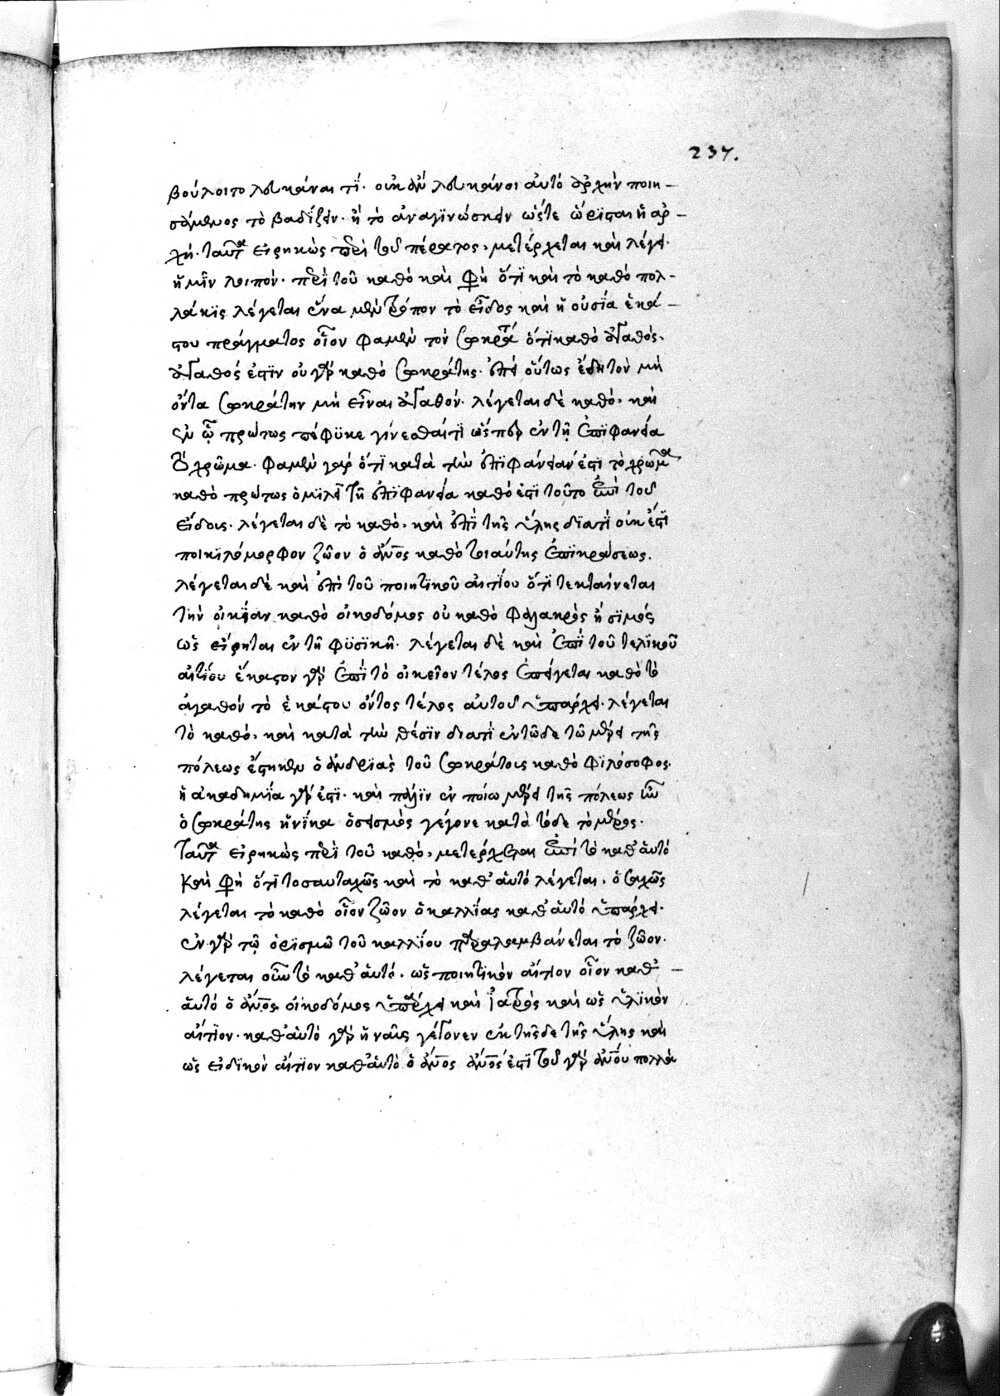 237.
βούλοιτο λευκάναι τί· οὐκ ἂν λευκάναι αὐτὸ ἀρχὴν ποιη-
σάμενος τὸ βαδίζειν· ἢ τὸ ἀναγινώσκειν ὥστε ὥρισται ἡ ἀρ-
χή· ταῦτα εἰρηκὼς περὶ τοῦ πέρατος, μετέρχεται καὶ λέγει
ἡμῖν λοιπὸν· περὶ τοῦ καθὸ καὶ φησὶ ὅτι καὶ τὸ καθὸ πολ-
λάκις λέγεται ἕνα μὲν τρόπον τὸ εἶδος καὶ ἡ οὐσία ἑκά-
στου πράγματος οἷον φαμὲν τὸν σωκράτη ὅτι καθὸ ἀγαθὸς,
ἀγαθός ἐστιν οὐ γὰρ καθὸ σωκράτης· ἐπεὶ οὕτως ἔδει τὸν μὴ
ὄντα σωκράτην μὴ εἶναι ἀγαθόν· λέγεται δὲ καθὸ, καὶ
ἐν ᾧ πρώτως πέφυκε γίνεσθαί τι ὥσπερ ἐν τῇ ἐπιφανεία
τὸ χρῶμα· φαμὲν γὰρ ὅτι κατὰ τὴν ἐπιφάνειάν ἐστι τὸ χρῶμα
καθὸ πρώτως ὁμιλεῖ τῇ ἐπιφανεία καθὸ ἐστι τοῦτο ἐπὶ τοῦ
εἴδους· λέγεται δὲ τὸ καθὸ, καὶ ἐπὶ τῆς ὕλης διατί οὐκ ἔστι
ποικιλόμορφον ζῶον ὁ ἄνος καθὸ τοιαύτης ἐπικράσεως.
λέγεται δὲ καὶ ἐπὶ τοῦ ποιητικοῦ αἰτίου ὅτι τεκταίνεται
τὴν οἰκίαν καθὸ οἰκοδόμος οὐ καθὸ φαλακρὸς ἢ σιμός
ὡς εἴρηται ἐν τῇ φυσικῇ· λέγεται δὲ καὶ ἐπὶ τοῦ τελικοῦ
αἰτίου ἕκαστον γὰρ ἐπὶ τὸ οἰκεῖον τέλος ἐπείγεται καθὸ τὸ
ἀγαθόν τὸ ἑκάστου ὄντος τέλος αὐτοῦ ὑπάρχει· λέγεται
τὸ καθὸ, καὶ κατὰ τὴν θέσιν διατί ἐν τῶδε τῶ μέρει τῆς
πόλεως ἔστηκεν ὁ ἀνδριὰς τοῦ σωκράτους καθὸ φιλόσοφος,
ἡ ἀκαδημία γὰρ ἐστι· καὶ πάλιν ἐν ποίω μέρει τῆς πόλεως ἦν
ὁ σωκράτης ἡνίκα ὁ σεισμὸς γέγονε κατὰ τόδε τὸ μέρος.
Ταῦτα εἰρηκὼς περὶ τοῦ καθὸ, μετέρχεται ἐπὶ τὸ καθ' αὑτὸ
καὶ φησὶ ὅτι τοσαυταχῶς καὶ τὸ καθ' αὑτὸ λέγεται, ὁσαχῶς
λέγεται τὸ καθὸ οἷον ζῶον ὁ καλλίας καθ' αὑτὸ ὑπάρχει.
ἐν γὰρ τῷ ὁρισμῶ τοῦ καλλίου παραλαμβάνεται τὸ ζῶον.
λέγεται οὖν τὸ καθ' αὑτὸ, ὡς ποιητικὸν αἴτιον οἷον καθ' -
αὑτὸ ὁ ἄνος οἰκοδόμος ὑπάρχει καὶ ἰατρὸς καὶ ὡς ὑλικὸν
αἴτιον· καθ' αὑτὸ γὰρ ἡ ναῦς γέγονεν ἐκ τῆσδε τῆς ὕλης καὶ
ὡς εἰδικὸν αἴτιον καθ' αὑτὸ ὁ ἄνος ἄνος ἐστι τοῦ γὰρ ἀνου πολλὰ